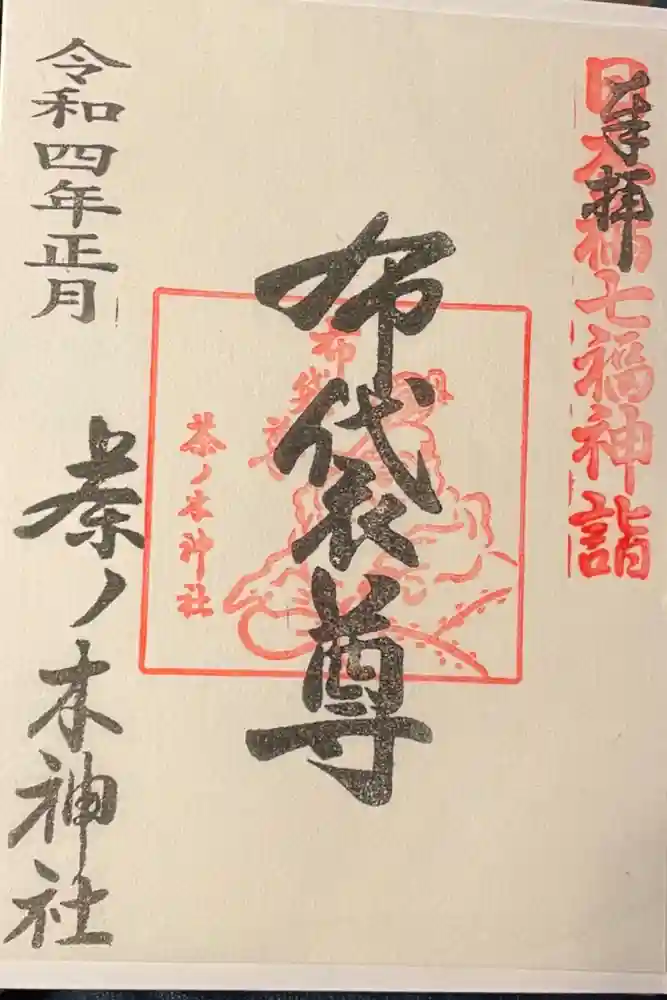 奉拝
日本橋七福神詣
布袋尊
布袋尊
茶ノ木神社
令和四年正月
茶ノ木神社